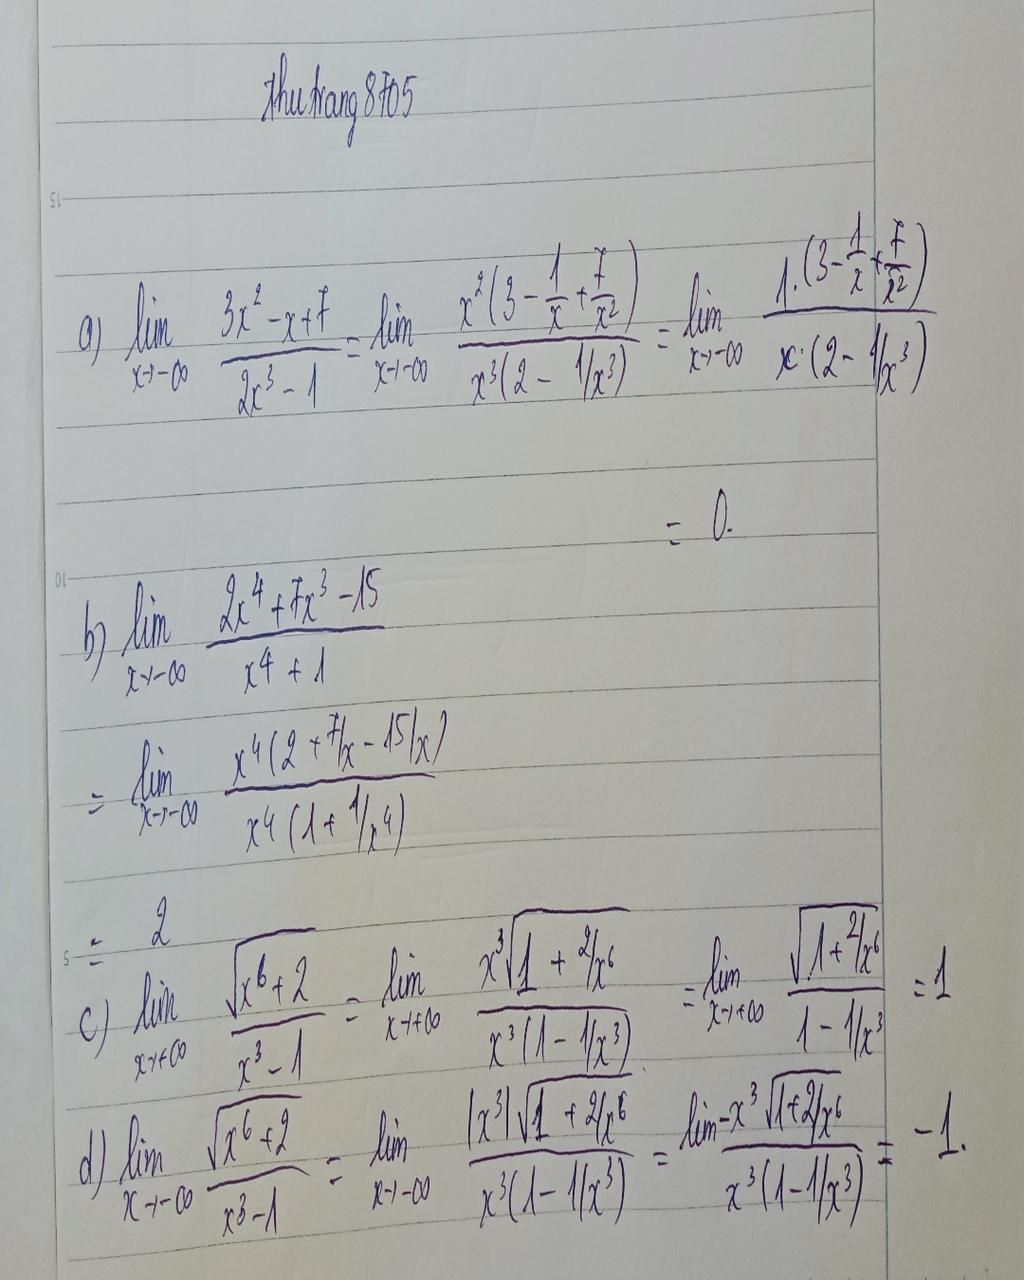 thutrang8705
15
a) lim x→-∞ (3x² - x + 7)/(2x³ - 1) = lim x→-∞ x²(3 - 1/x + 7/x²)/x³(2 - 1/x³) = lim x→-∞ 1.(3 - 1/x + 7/x²)/x.(2 - 1/x³)
= 0.
10
b) lim x→-∞ (2x⁴ + 7x³ - 15)/(x⁴ + 1)
= lim x→-∞ x⁴(2 + 7/x - 15/x)/x⁴(1 + 1/x⁴)
= 2
5
c) lim x→+∞ √(x⁶ + 2)/(x³ - 1) = lim x→+∞ x³√(1 + 2/x⁶)/x³(1 - 1/x³) = lim x→+∞ √(1 + 2/x⁶)/(1 - 1/x³) = 1
d) lim x→-∞ √(x⁶ + 2)/(x³ - 1) = lim x→-∞ |x³|√(1 + 2/x⁶)/x³(1 - 1/x³) = lim -x³√(1 + 2/x⁶)/x³(1 - 1/x³) = -1.